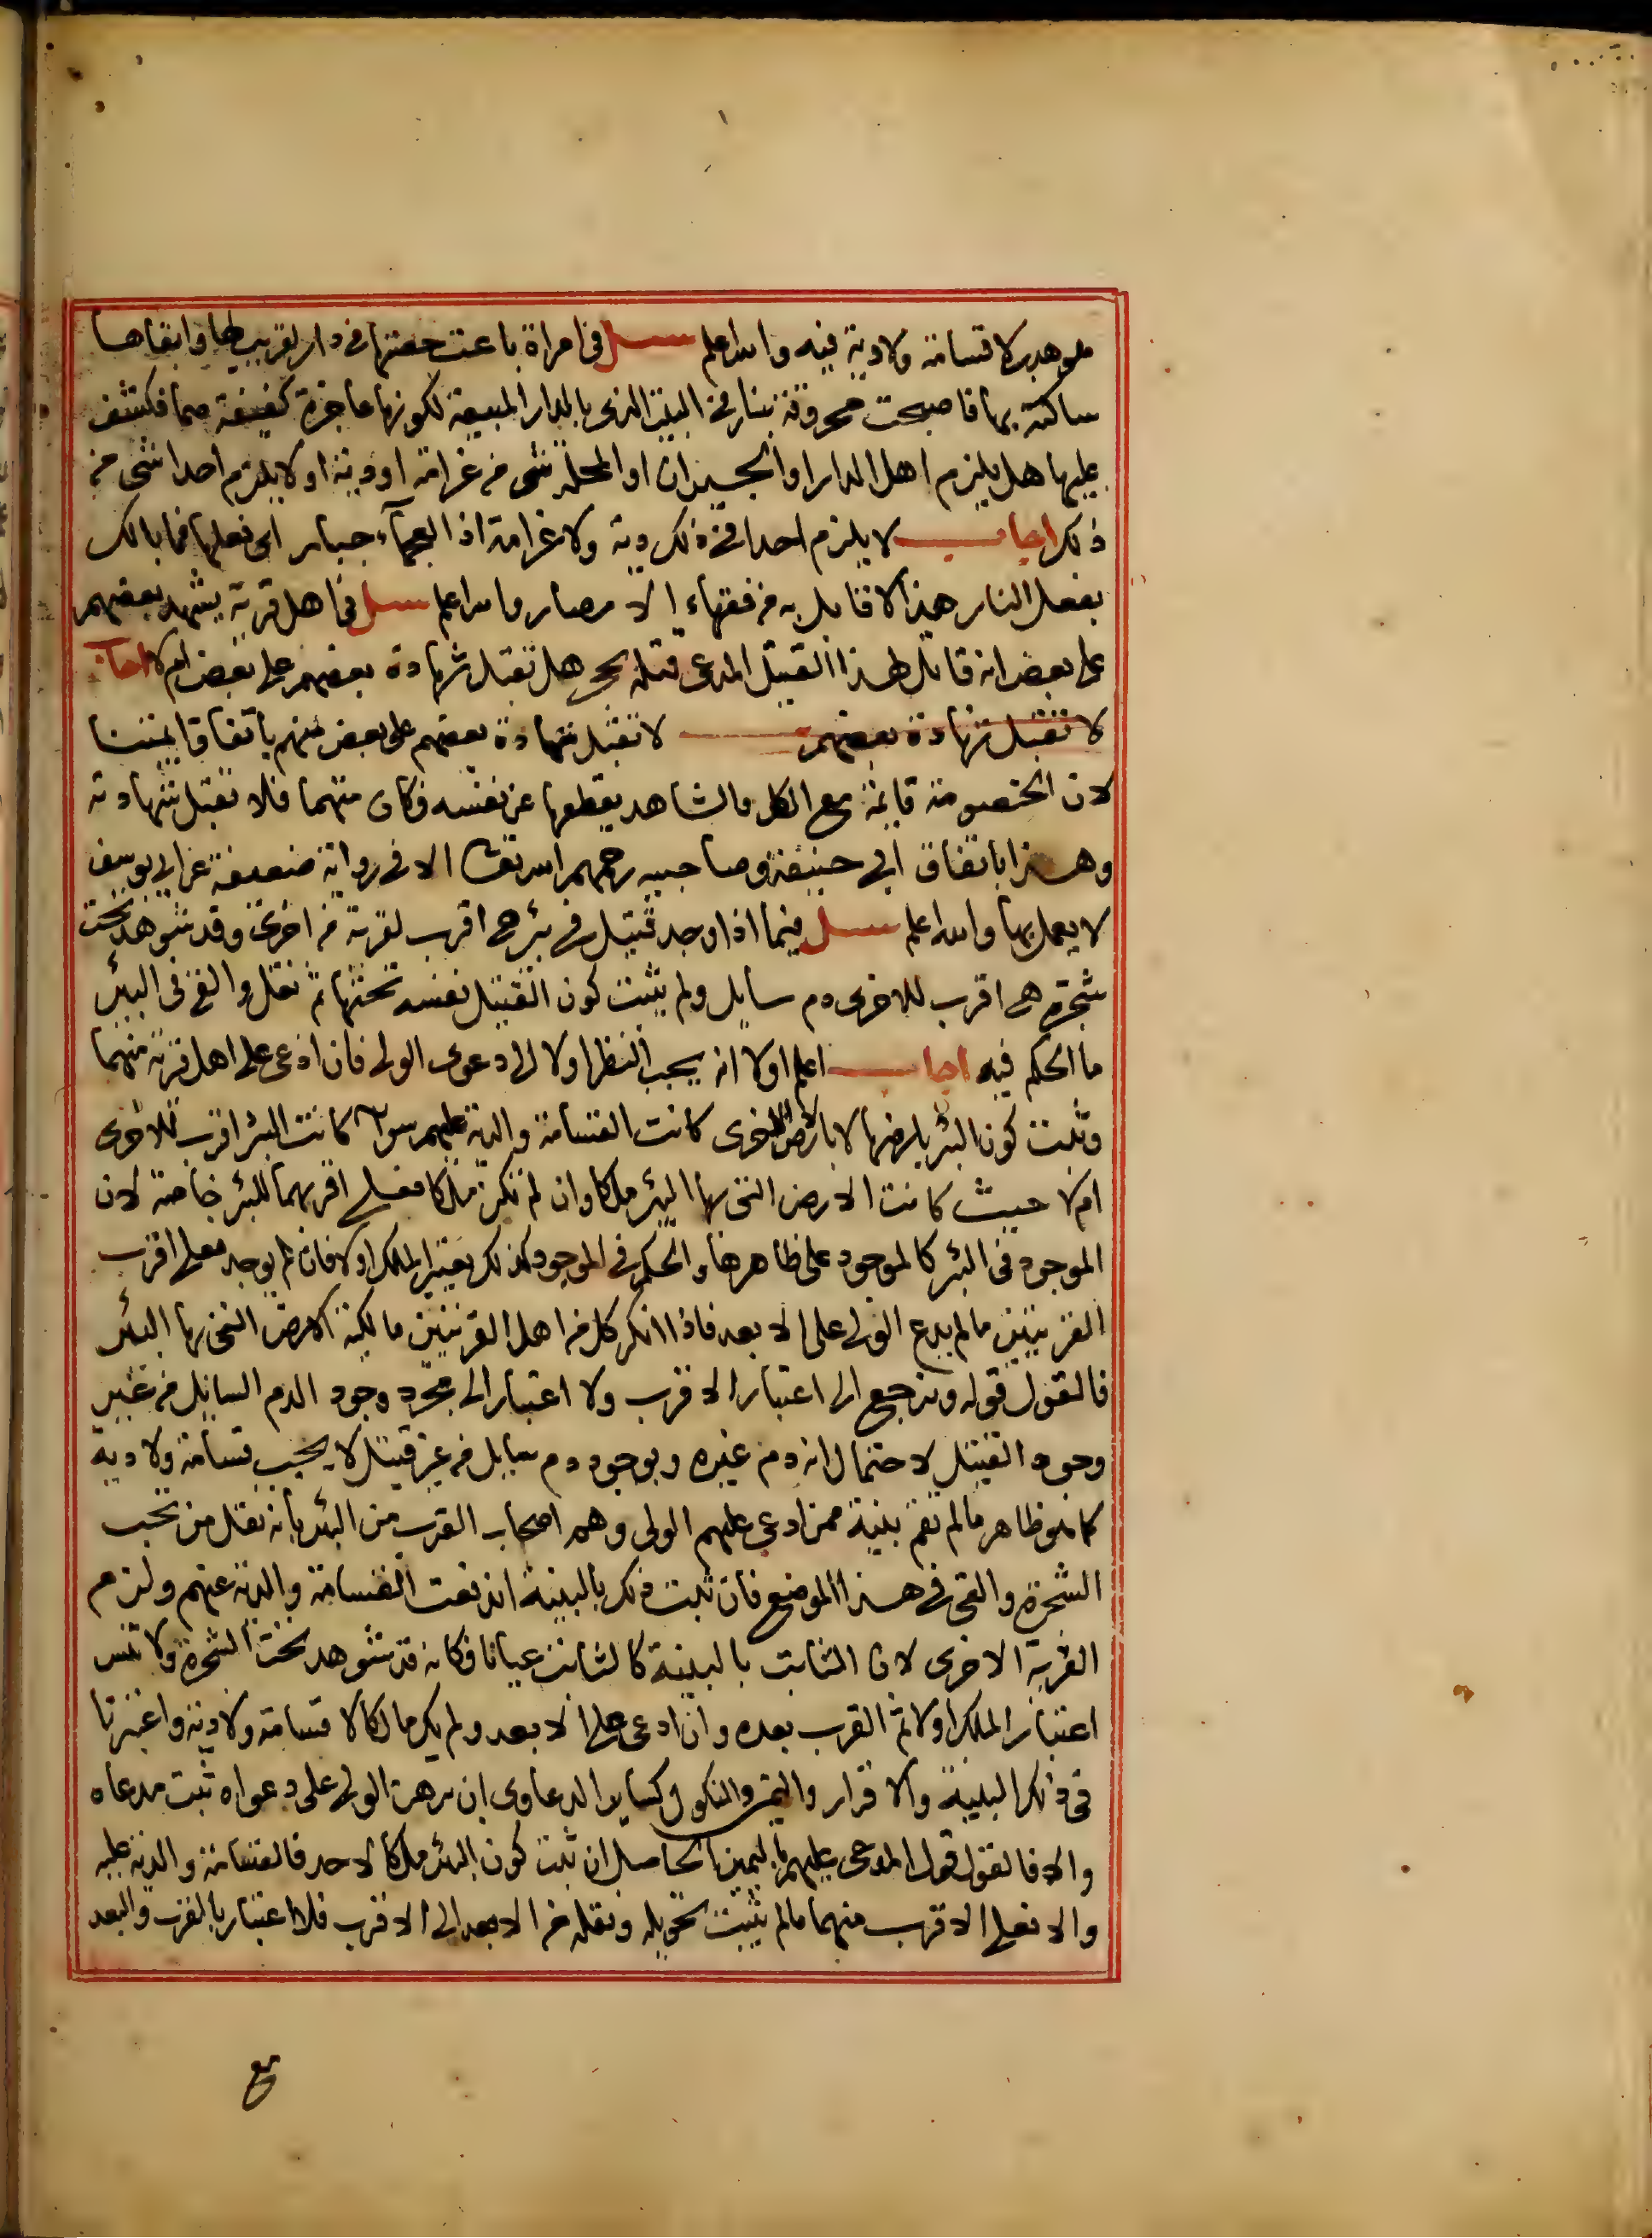 فهو هدر لا قسامة ولا دية فيه والله اعلم سئل في امراة باعت حصتها في دار لقريب لها وابقاها
ساكنة بها فاصبحت محروقة بنار في البيت الذي بالدار المبيعة لكونها عاجزة كفيفة صما فكشف
عليها هل يلزم اهل الدار او الجيران او المحلة شي من غرامة او دية او لا يلزم احدا شي من
ذلك اجاب لا يلزم احدا في ذلك دية ولا غرامة اذ العجماء جبار اي فعلها فما بالك
بفعل النار هذا لا قايل به من فقهاء الامصار والله اعلم سئل في اهل قرية يشهد بعضهم
على بعض انه قاتل لهذا القتيل المدعى قتله بحجر هل تقبل شهادة بعضهم على بعض ام لا اجاب
لا تقبل شهادة بعضهم لا تقبل شهادة بعضهم على بعض منهم باتفاق ايمتنا
لان الخصومة قائمة مع الكل والشاهد يقطعها عن نفسه فكان متهما فلا تقبل شهادته
وهذا باتفاق ابي حنيفة وصاحبيه رحمهم الله تعالى الا في رواية ضعيفة عن ابي يوسف
لا يعمل بها والله اعلم سئل فيما اذا وجد قتيل في بئر هي اقرب لقرية من اخرى وقد شوهد تحت
شجرة هي اقرب للاخرى دم سايل ولم يثبت كون القتيل نفسه تحتها ثم نقل والقي في البئر
ما الحكم فيه اجاب اعلم اولا انه يجب النظر اولا الى دعوى الولي فان ادعى على اهل قرية منهما
وثبت كون البئر بارضها لا بارض الاخرى كانت القسامة والدية عليهم سواء كانت البئر اقرب للاخرى
ام لا حيث كانت الارض التي بها البئر ملكا وان لم تكن ملكا فعلى اقربهما للبئر خاصة لان
الموجود في البئر كالموجود على ظاهرها والحكم في الموجود كذلك يعتبر الملك اولا فان لم يوجد فعلى اقرب
القريتين ما لم يدع الولي على الابعد فاذا انكر كل من اهل القريتين مالكية الارض التي بها البئر
فالقول قوله ونرجع الى اعتبار الاقرب ولا اعتبار الى مجرد وجود الدم السايل من غير
وجود القتيل لاحتمال انه دم غيره وبوجود دم سايل من غير قتيل لا يجب قسامة ولا دية
كما هو ظاهر ما لم تقم بينة ممن ادعى عليهم الولي وهم اصحاب القرب من البئر بانه نقل من تحت
الشجرة والقي في هذا الموضع فان ثبت ذلك بالبينة اندفعت القسامة والدية عنهم ولزم
القرية الاخرى لان الثابت بالبينة كالثابت عيانا فكانه قد شوهد تحت الشجرة ولا تنس
اعتبار الملك اولا ثم القرب بعده وان ادعى على الابعد ولم يكن مالكا لا قسامة ولا دية واعتبرنا
في ذلك البينة والاقرار واليمين والنكول كساير الدعاوى ان برهن الولي على دعواه ثبت مدعاه
والا فالقول قول المدعى عليهم باليمين الحاصل ان ثبت كون البئر ملكا لاحد فالقسامة والدية عليه
والا فعلى الاقرب منهما ما لم يثبت تحويله ونقله من الابعد الى الاقرب فلا اعتبار بالقرب والبعد
مع